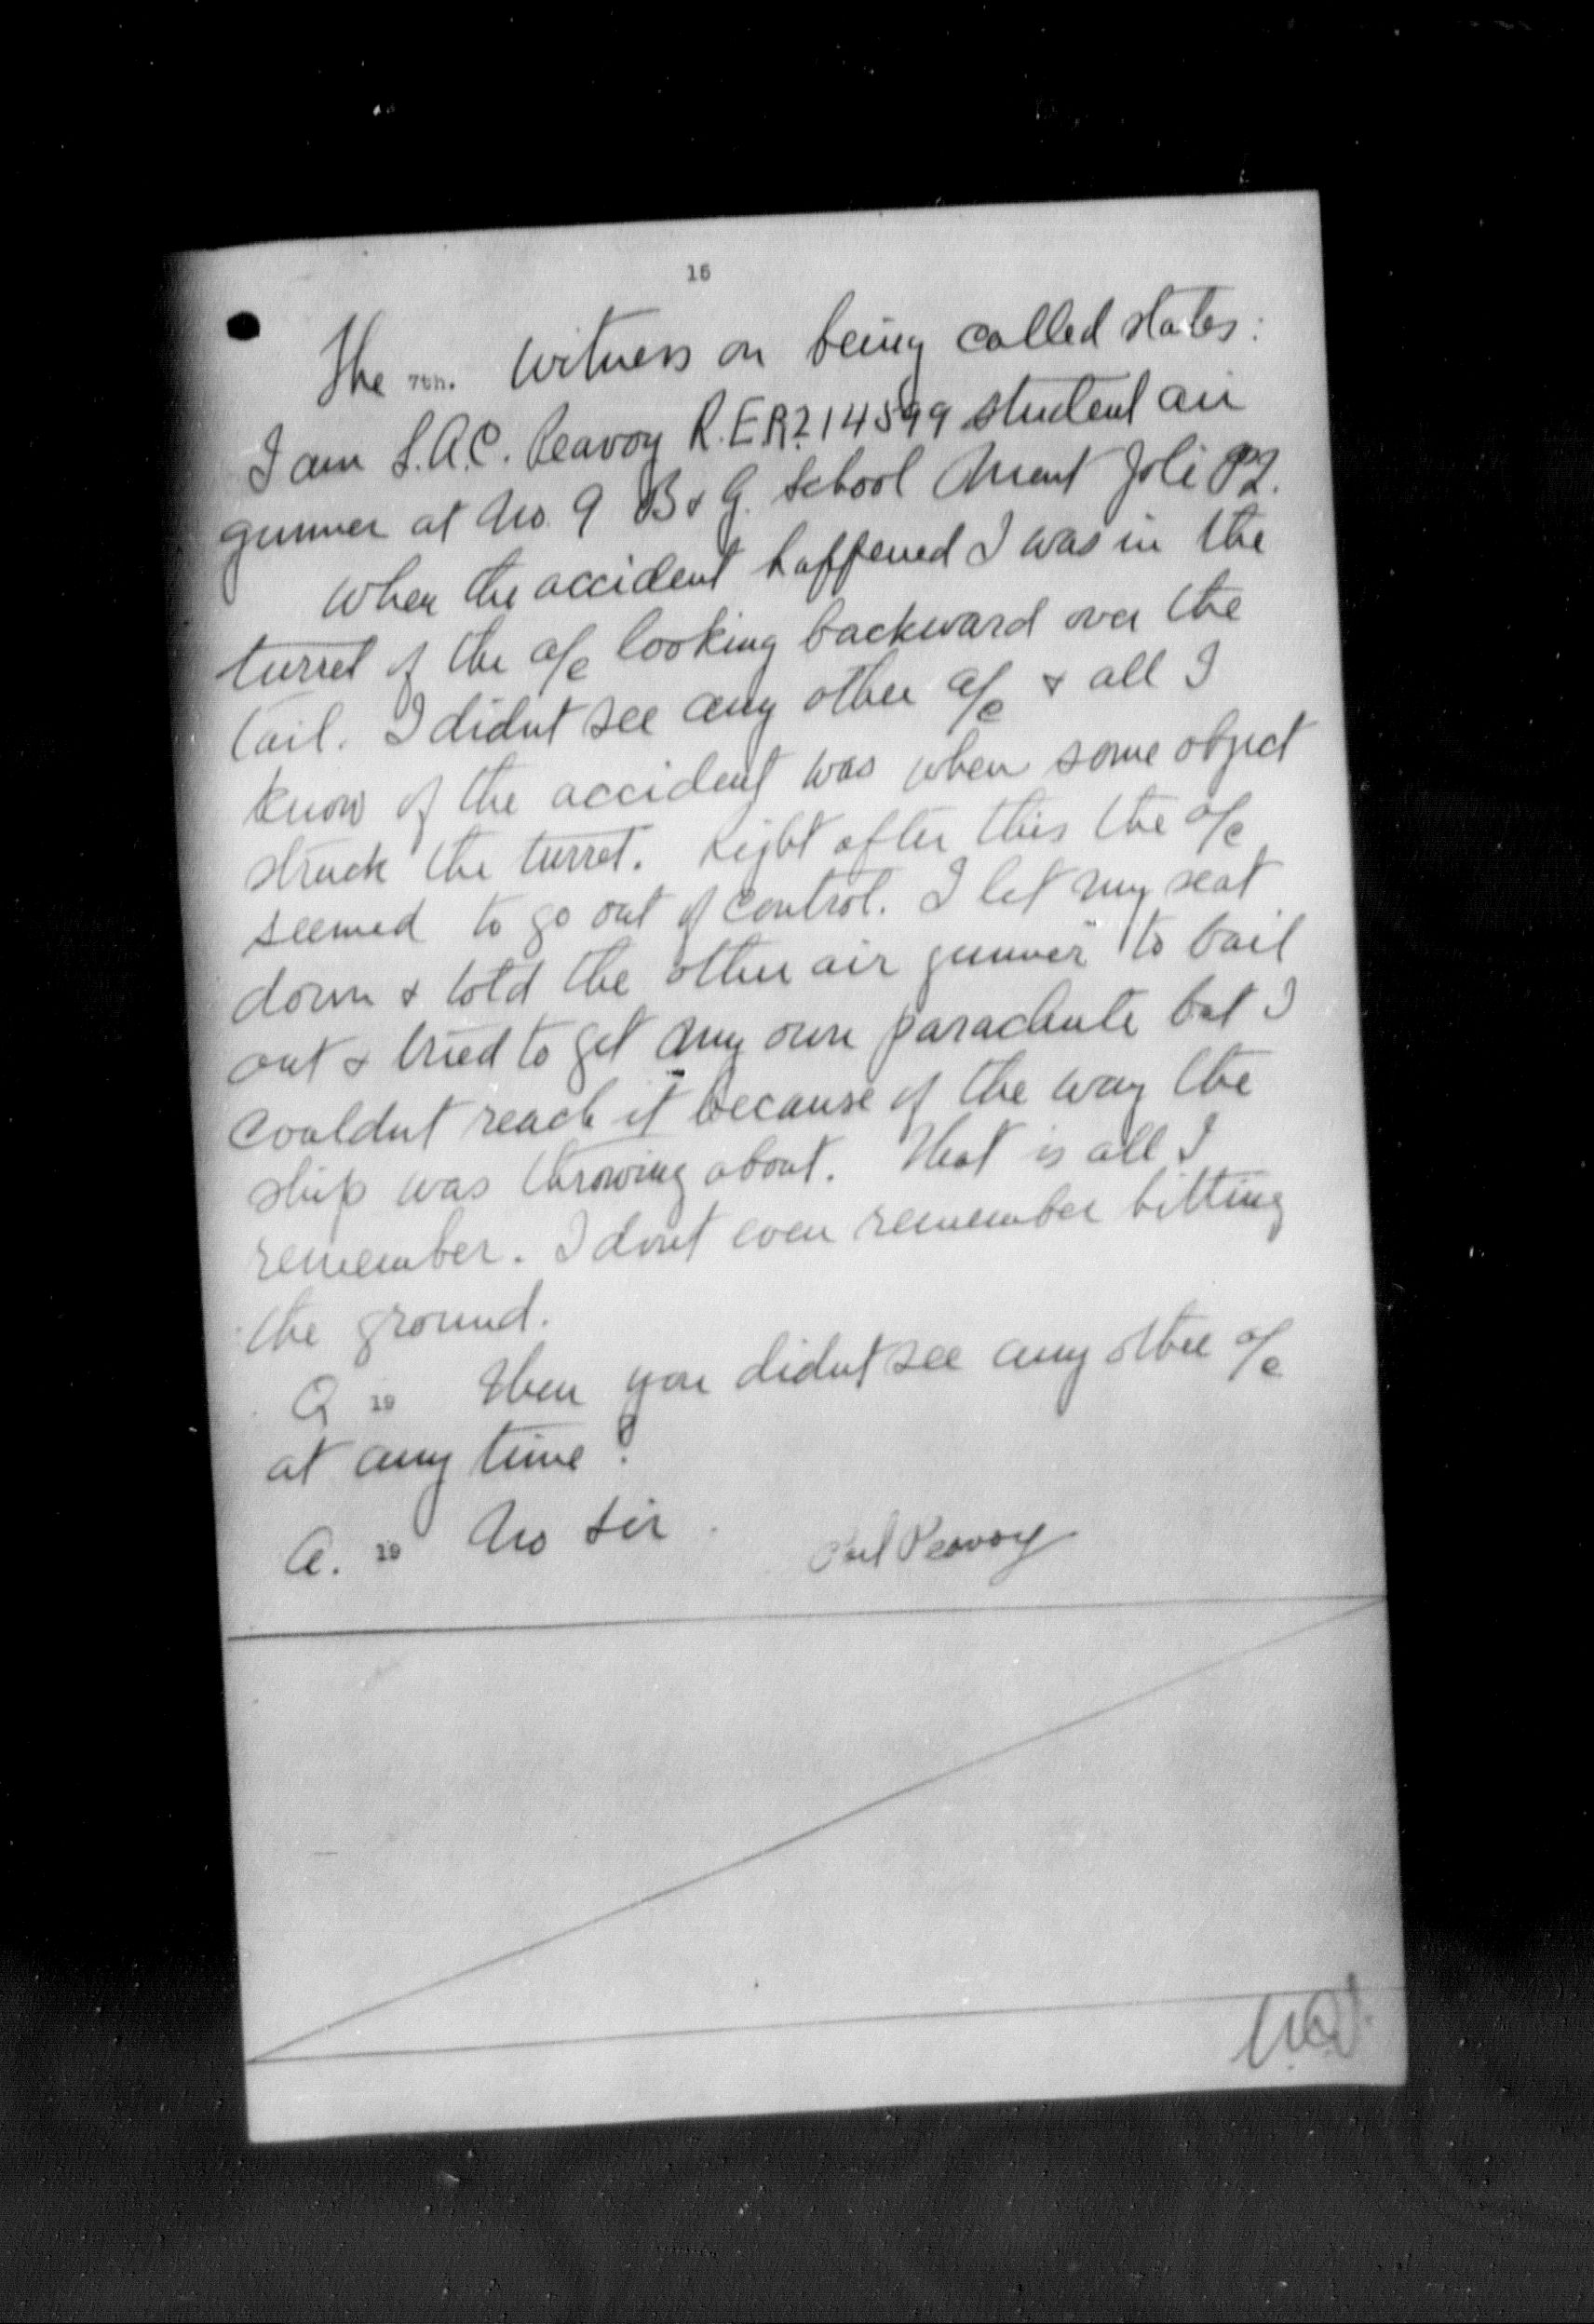 16
The 7th. witness on being called states:
I am L.A.C. Peavoy R.E R214599 student air
gunner at No. 9 B & G. School Mont Joli P2.
When the accident happened I was in the
turret of the a/c looking backward over the
tail. I didnt see any other a/c & all I
know of the accident was when some object
struck the turret. Right after this the a/c
seemed to go out of control. I let my seat
down & told the other air gunner to bail
out & tried to get my own parachute but I
couldnt reach it because of the way the
ship was throwing about. That is all I
remember. I dont even remember hitting
the ground.
Q 19 Then you didnt see any other a/c
at any time?
A. 19 No sir.
Peavoy